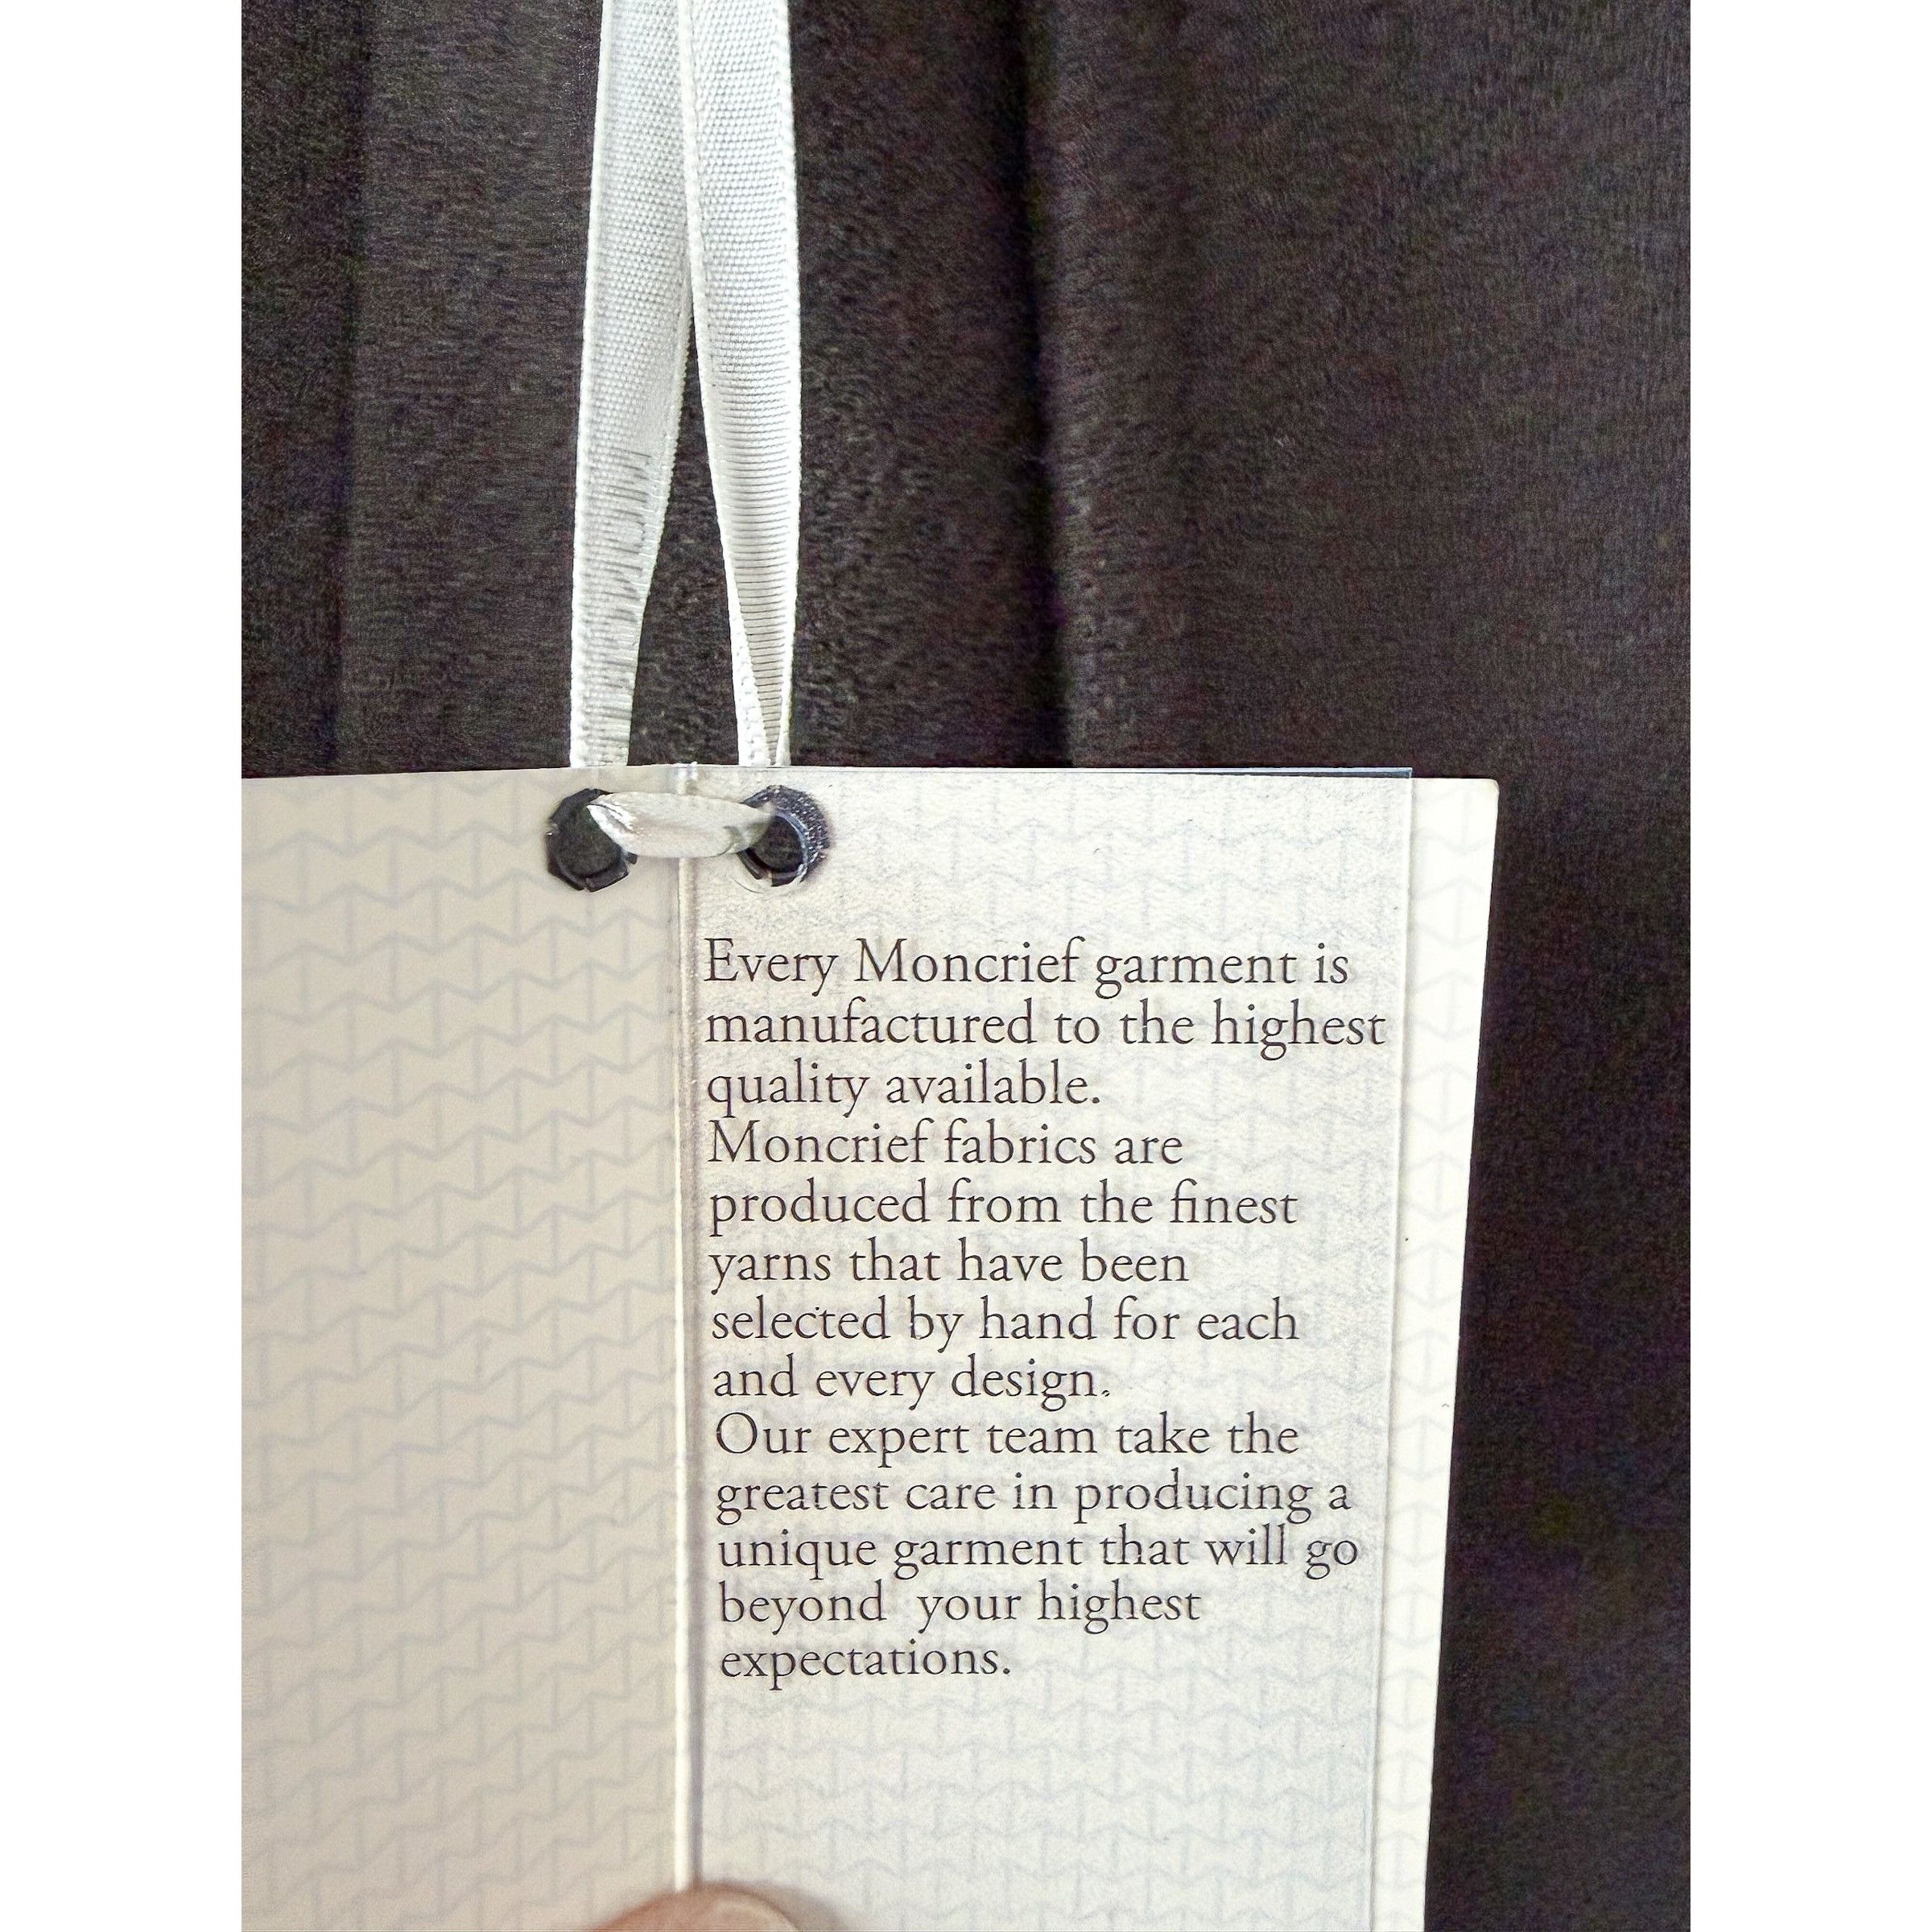 Every Moncrief garment is
manufactured to the highest
quality available.
Moncrief fabrics are
produced from the finest
yarns that have been
selected by hand for each
and every design.
Our expert team take the
greatest care in producing a
unique garment that will go
beyond  your highest
expectations.